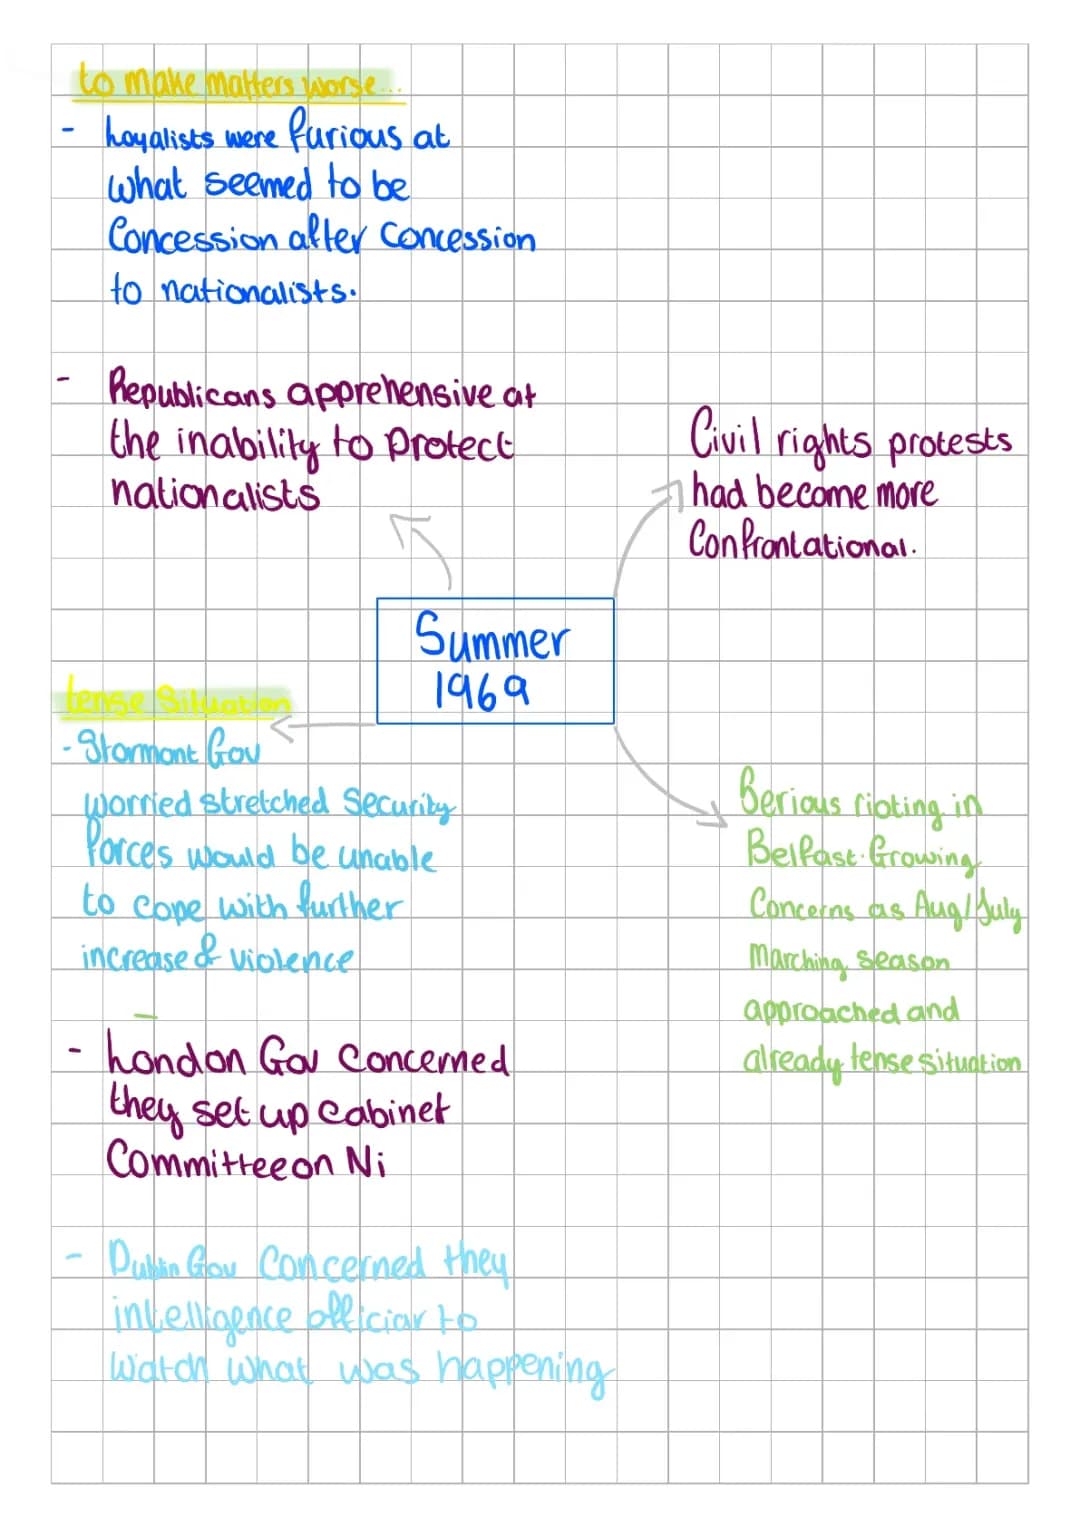 to make matters worse...
- Loyalists were furious at
what seemed to be
Concession after Concession
to nationalists.
- Republicans apprehensive at
the inability to protect
nationalists
Civil rights protests
had become more
Confrontational.
Summer
1969
tense Situation
- Stormont Gov
worried stretched Security
forces would be unable
to cope with further
increase of violence
-
- London Gov Concerned
they set up Cabinet
Committee on Ni
- Dublin Gov Concerned they
intelligence officiar to
watch what was happening
Serious rioting in
Belfast. Growing
Concerns as Aug/July
Marching season
approached and
already tense situation